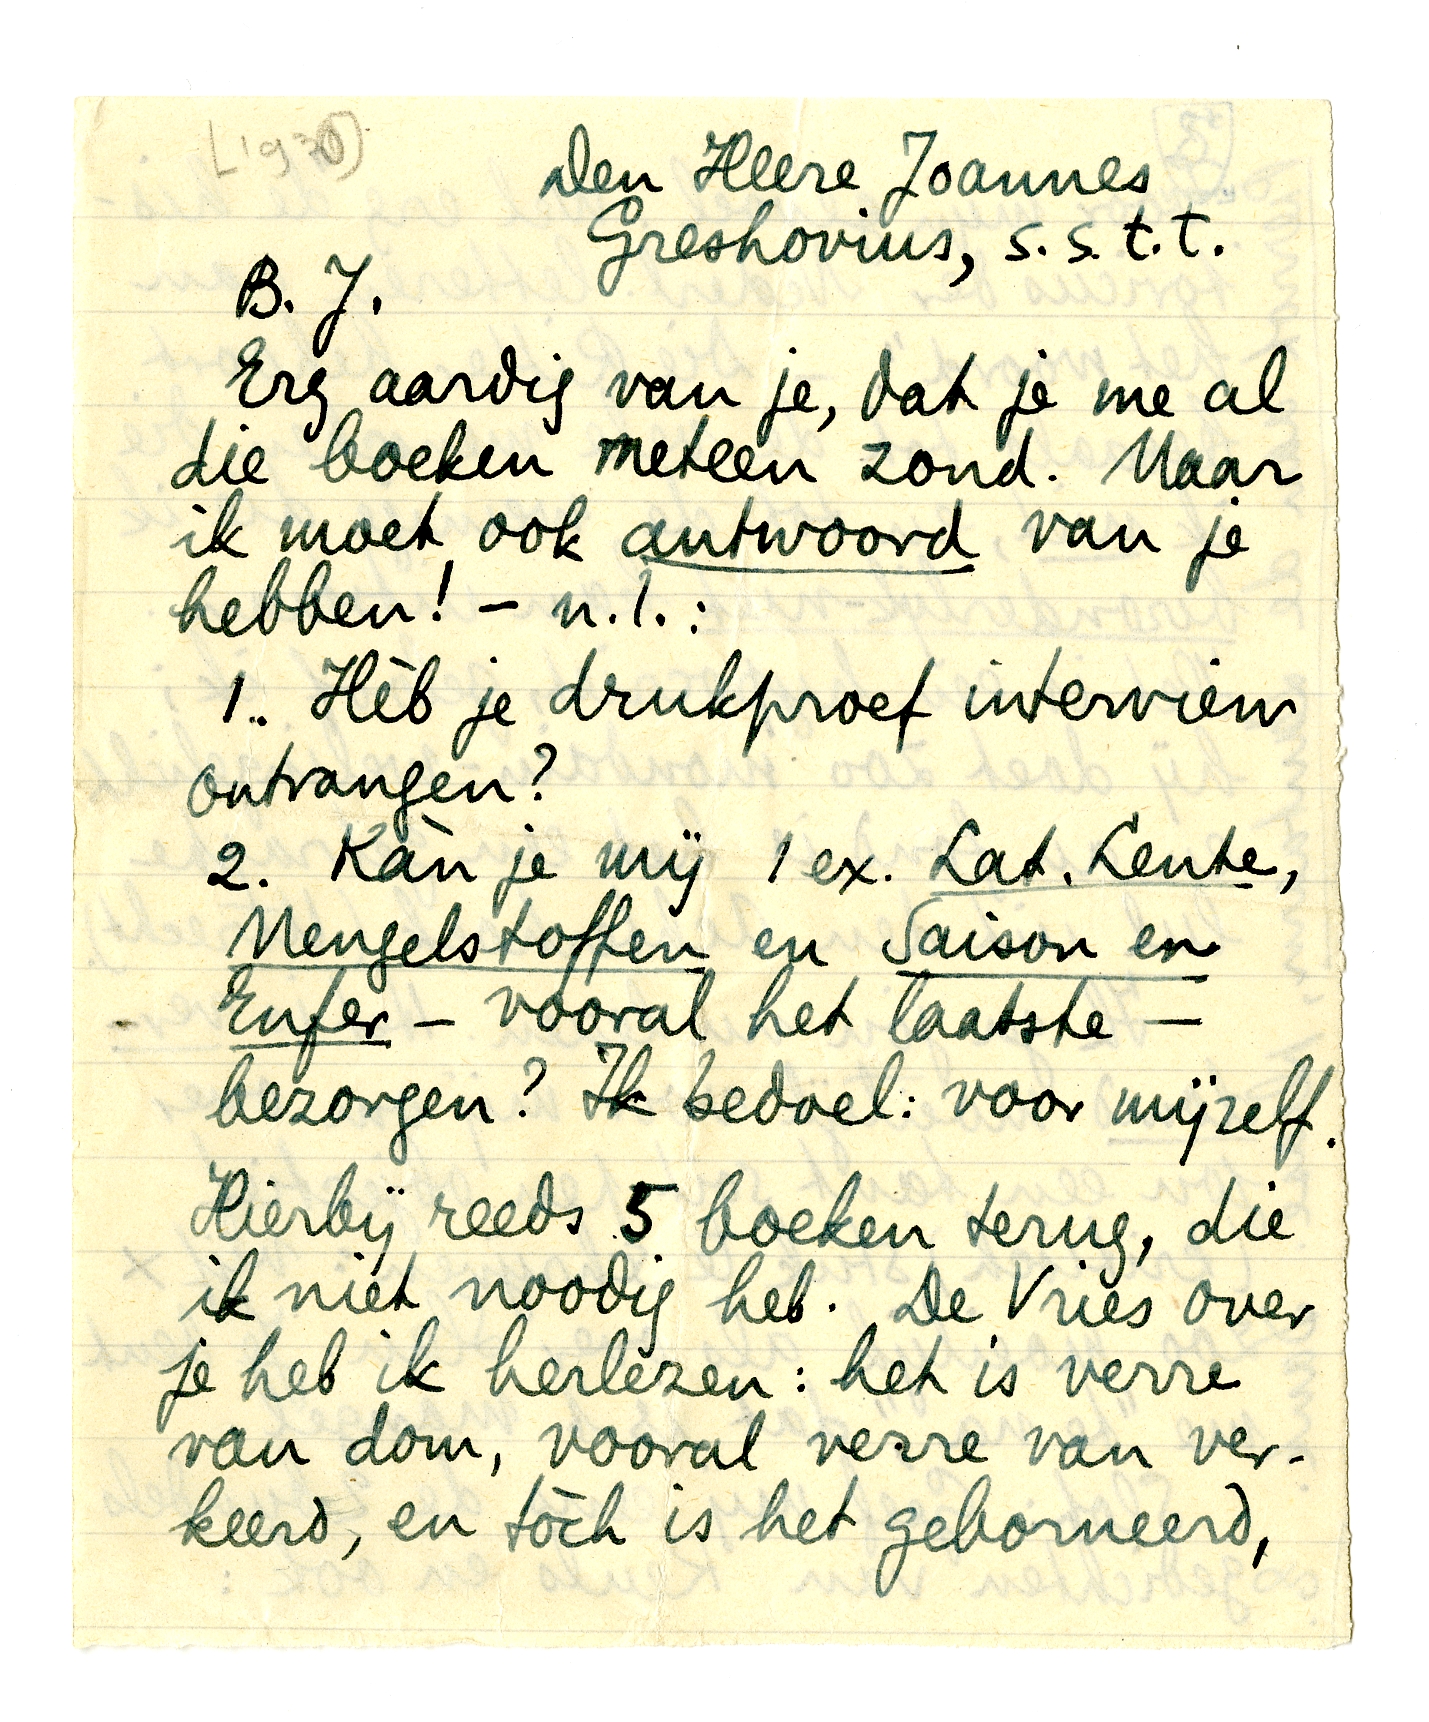 [1930]
Den Heere Joannes
Greshovius, s.s.t.t.
B. J.
Erg aardig van je, dat je me al
die boeken meteen zond. Maar
ik moet ook antwoord van je
hebben! – n.l.:
1.. Hèb je drukproef interview
ontvangen?
2. Kàn je mij 1 ex. Lat. Lente,
Mengelstoffen en Saison en
Enfer – vooral het laatste –
bezorgen? Ik bedoel: voor mijzelf.
Hierbij reeds 5 boeken terug, die
ik niet noodig heb. De Vries over
je heb ik herlezen: het is verre
van dom, vooral verre van ver-
keerd, en tòch is het geborneerd,